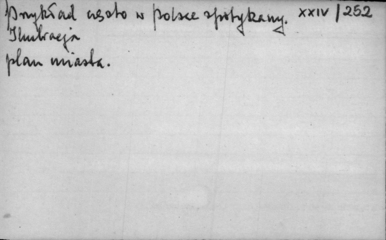 Przykład często w Polsce spotykany. XXIV/252
Ilustracja
plan miasta.